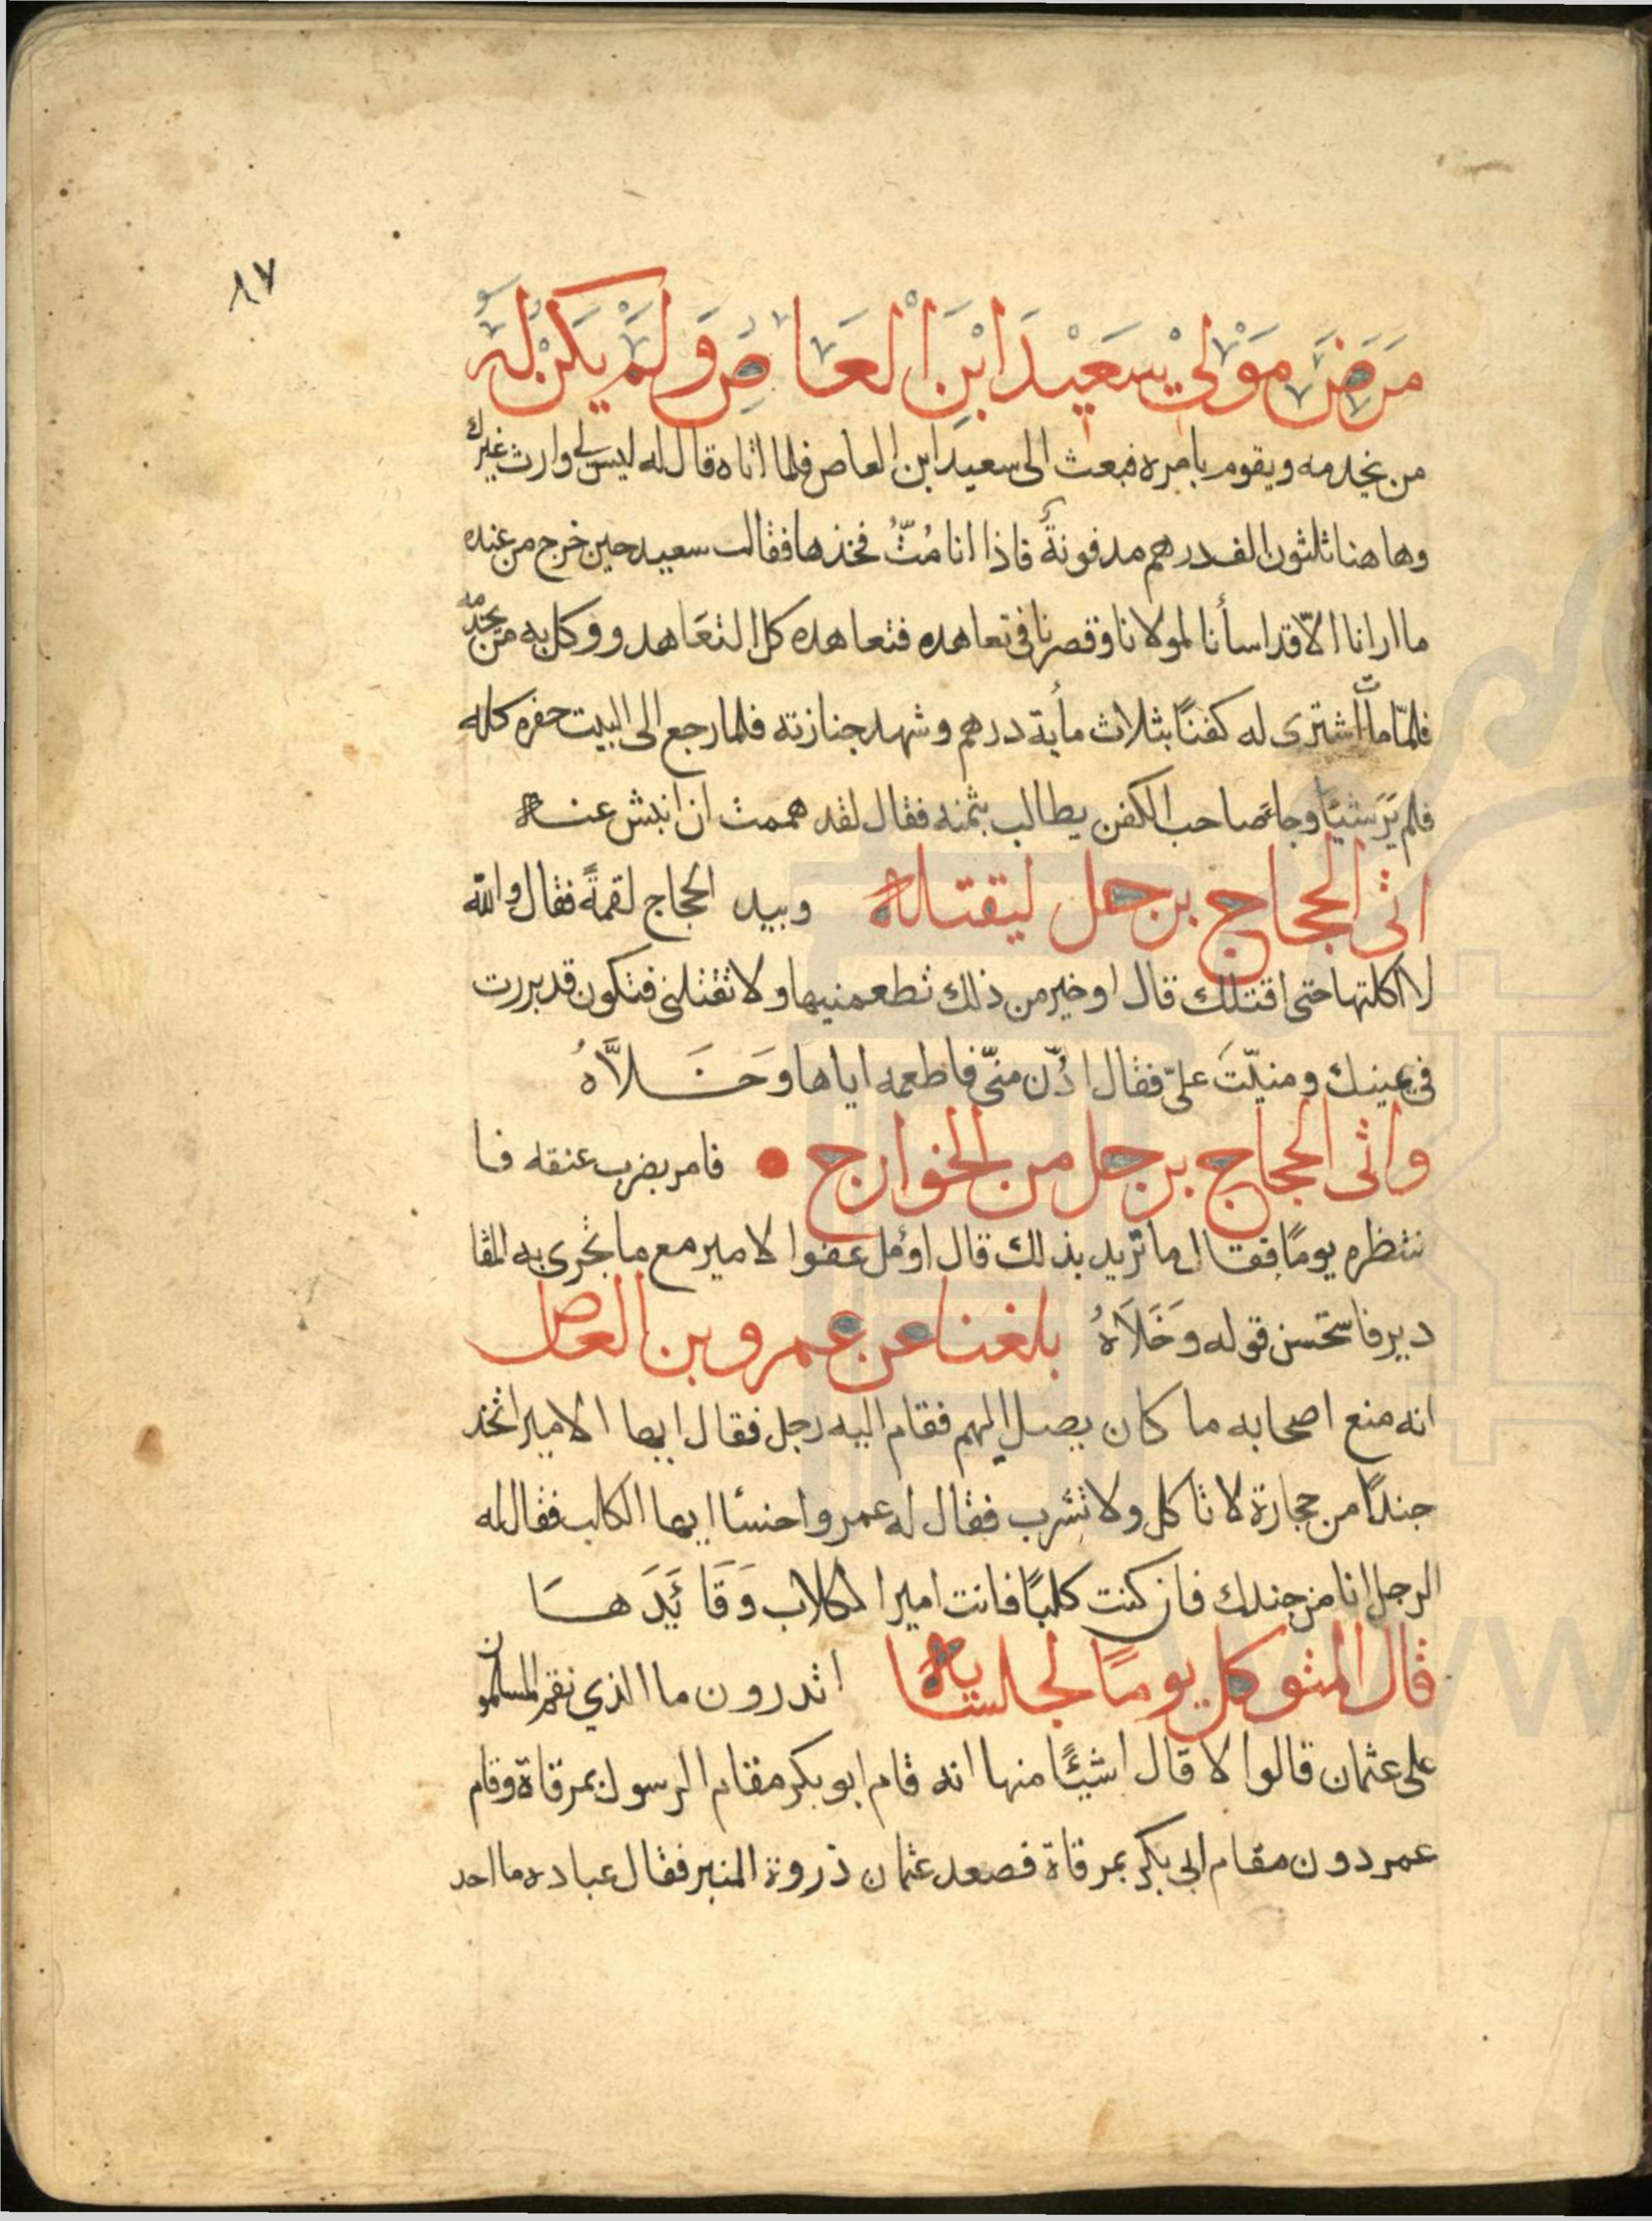 ٨٧
مَرَضَ مَوْلیْ سَعَیْدَ ابْنِ الْعَاصِ وَلَمْ یَکُنْ لَهُ
من یخدمه ویقوم بامره فبعث الی سعید ابن العاص فلما اتاه قال له لیس لی وارث غیرك
وها هنا ثلثون الف درهم مدفونةً فاذا انا مُتُّ فخذها فقالت سعید حین خرج من عنده
ما ارانا الّا قد اسأنا لمولانا وقصرنا فی تعاهده فتعاهده کل التعَاهد ووکل به من یخدّمه
فلمّا ماتَّ اشتری له کفنًا بثلاث مأیة درهم وشهد جنازته فلما رجع الی البیت حفره کله
فلم یَرَ شیئًا وجاءَ صاحب الکفن یطالب بثمنه فقال لقد هممت ان انبش عنه
اتی الحجاج برجل لیقتله وبید الحجاج لقمةً فقال والله
لا اکلتها حتی اقتلك قال او خیر من ذلك تطعمنیها ولا تقتلنی فتکون قد بررت
فی یمینك ومنیّتَ علیّ فقال ادُن منّی فاطعمه ایاها وخَلاَّهُ
واتی الحجاج برجل من الخوارج فامر بضرب عنقه فا
نتظره یومًا فقال ما ترید بذلك قال اوُمل عفوا لامیر مع ما تجری به المقا
دیر فاستحسن قوله وَخَلَاهُ بلغنا عن عمرو بن العاص
انه منع اصحابه ما کان یصل الیهم فقام الیه رجل فقال ایها الامیر اتخذ
جندًا من حجارة لا تاکل ولا تشرب فقال له عمرو اخسئا ایها الکلب فقال له
الرجل انا من جندك فان کنت کلبًا فانت امیر الکلاب وَقَایَدَهَا
قال المتوکل یومًا لجلسایه اتدرون ما الذي نقم المسلمون
علی عثمان قالوا لا قال اشیئًا منها انه قام ابو بکر مقام الرسول بمرقاة وقام
عمر دون مقام ابی بکر بمرقاة فصعد عثمان ذروة المنبر فقال عباده ما احد